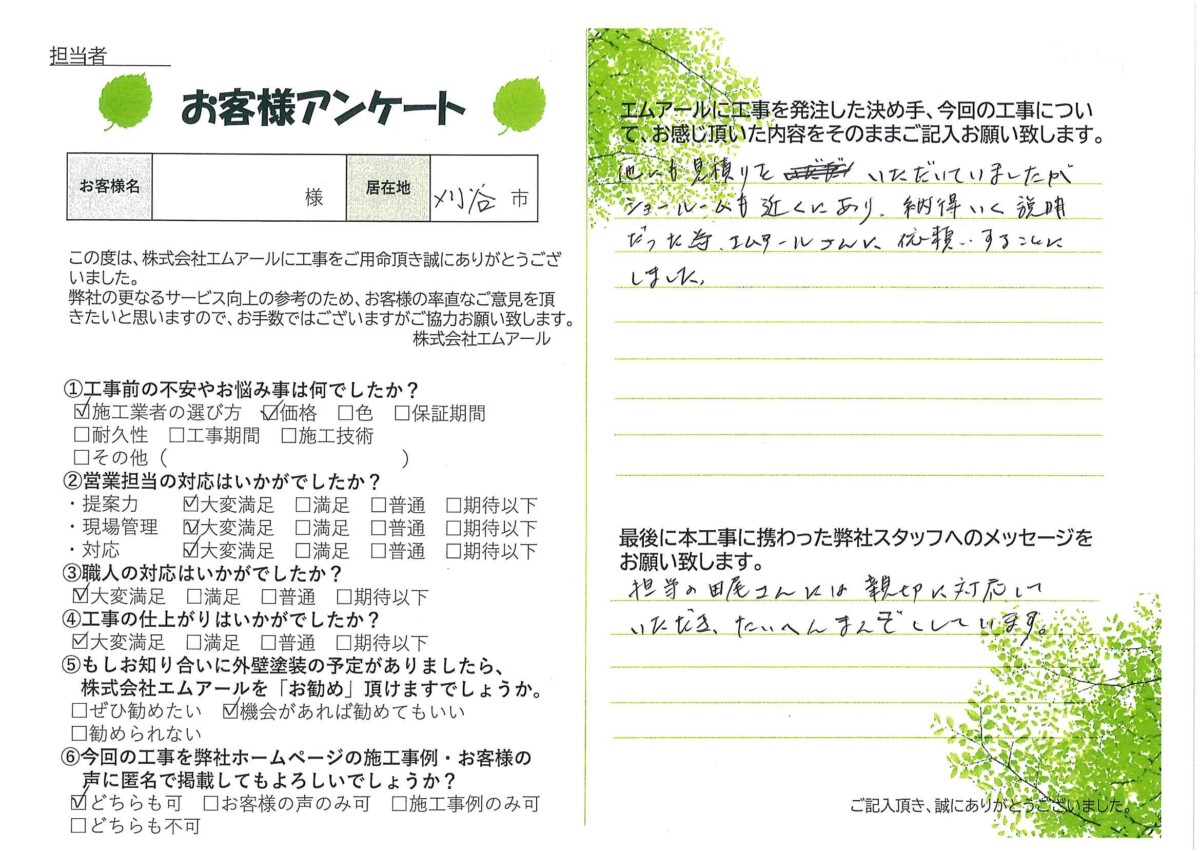 担当者
お客様アンケート
お客様名
様
居在地
刈谷 市
この度は、株式会社エムアールに工事をご用命頂き誠にありがとうござ
いました。
弊社の更なるサービス向上の参考のため、お客様の率直なご意見を頂
きたいと思いますので、お手数ではございますがご協力お願い致します。
株式会社エムアール
①工事前の不安やお悩み事は何でしたか？
☑施工業者の選び方 ☑価格 □色 □保証期間
□耐久性 □工事期間 □施工技術
□その他（ ）
②営業担当の対応はいかがでしたか？
・提案力 ☑大変満足 □満足 □普通 □期待以下
・現場管理 ☑大変満足 □満足 □普通 □期待以下
・対応 ☑大変満足 □満足 □普通 □期待以下
③職人の対応はいかがでしたか？
☑大変満足 □満足 □普通 □期待以下
④工事の仕上がりはいかがでしたか？
☑大変満足 □満足 □普通 □期待以下
⑤もしお知り合いに外壁塗装の予定がありましたら、
株式会社エムアールを「お勧め」頂けますでしょうか。
□ぜひ勧めたい ☑機会があれば勧めてもいい
□勧められない
⑥今回の工事を弊社ホームページの施工事例・お客様の
声に匿名で掲載してもよろしいでしょうか？
☑どちらも可 □お客様の声のみ可 □施工事例のみ可
□どちらも不可
エムアールに工事を発注した決め手、今回の工事につい
て、お感じ頂いた内容をそのままご記入お願い致します。
他にも見積りを いただいていましたが
ショールームも近くにあり、納得いく説明
だった為、エムアールさんに、依頼いすることに
しました。
最後に本工事に携わった弊社スタッフへのメッセージを
お願い致します。
担当の田尾さんには親切に対応して
いただき、たいへんまんぞくしています。
ご記入頂き、誠にありがとうございました。